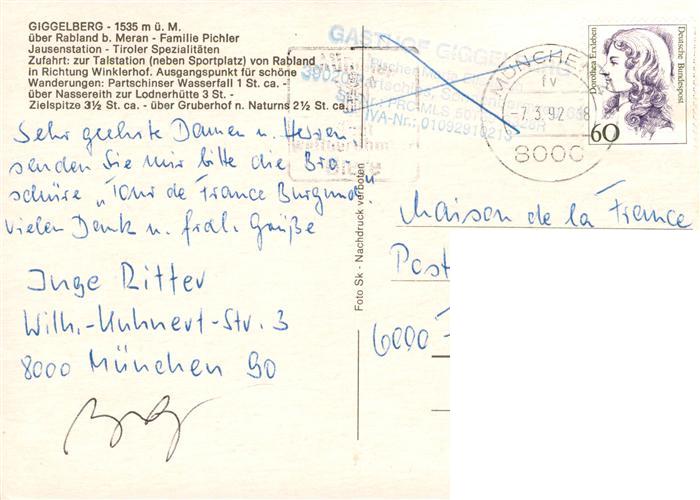 GIGGELBERG - 1535 m ü. M.
über Rabland b. Meran - Familie Pichler
Jausenstation - Tiroler Spezialitäten
Zufahrt: zur Talstation (neben Sportplatz) von Rabland
in Richtung Winklerhof. Ausgangspunkt für schöne
Wanderungen: Partschinser Wasserfall 1 St. ca. -
über Nassereith zur Lodnerhütte 3 St. -
Zielspitze 3½ St. ca. - über Gruberhof n. Naturns 2½ St. ca.
GASTHOF GIGGELBERG
IVA-Nr.: 01092910213
MÜNCHEN
fv
-7.3.92
8000
Dorothea Erxleben
Deutsche Bundespost
60
Sehr geehrte Damen u. Herren
senden Sie mir bitte die Bro-
schüre „Tour de France Burgund"
vielen Dank u. frdl. Grüße
Inge Ritter
Wilh.-Kuhnert-Str. 3
8000 München 90
Foto Sk - Nachdruck verboten
Maison de la France
Post
6000